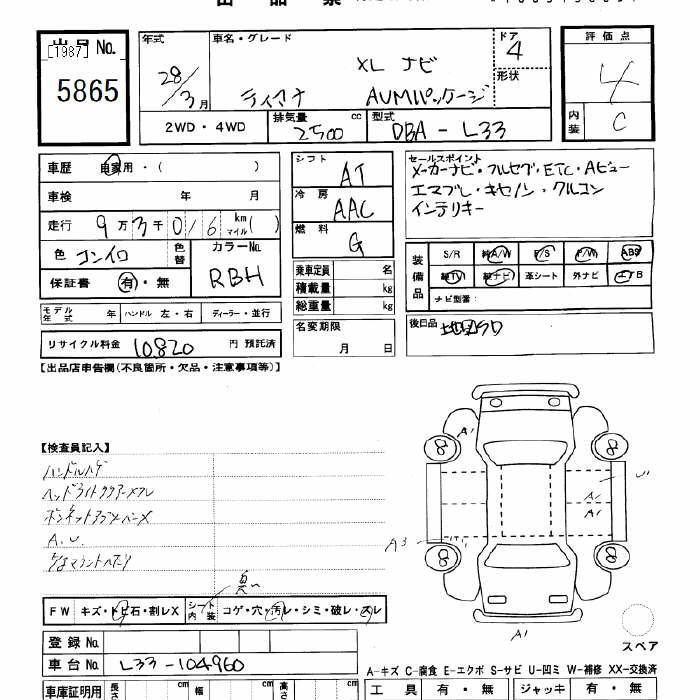 出品票
出品No.
[1987]
5865
年式 車名・グレード ドア 評価点
XL ナビ 4
28/3月 ティアナ AVMパッケージ 形状 4
2WD・4WD 排気量 2500 cc 型式 DBA-L33 内装 C
車歴 自家用・( )
車検 年 月
走行 9万3千016 km マイル( )
色 コンイロ 色替 カラーNo. RBH
保証書 有・無
モデル年式 年 ハンドル 左・右 ディーラー・並行
リサイクル料金 10,820 円 預託済
シフト AT
冷房 AAC
燃料 G
乗車定員 名
積載量 kg
総重量 kg
名変期限 月 日
セールスポイント
メーカーナビ・フルセグ・ETC・Aビュー
エマブレ・キセノン・クルコン
インテリキー
装備品 S/R 純A/W P/S P/W ABS
純TV 純ナビ 革シート 外ナビ エアB
ナビ型番:
後日品
【出品店申告欄(不良箇所・欠品・注意事項等)】
【検査員記入】
ハンドルハゲ
A.U.
FW キズ・トビ石・割レX シート内装 コゲ・穴・汚レ・シミ・破レ・スレ
登録No.
車台No. L33-104960
車庫証明用 長さ cm 幅 cm 高さ cm
A1
8 8
U
A1
A1
A3
8 8
A1
スペア
A-キズ C-腐食 E-エクボ S-サビ U-凹ミ W-補修 XX-交換済
工具 有・無 ジャッキ 有・無